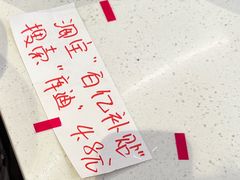 淘宝“百亿补贴”
搜索“库迪”4.8元